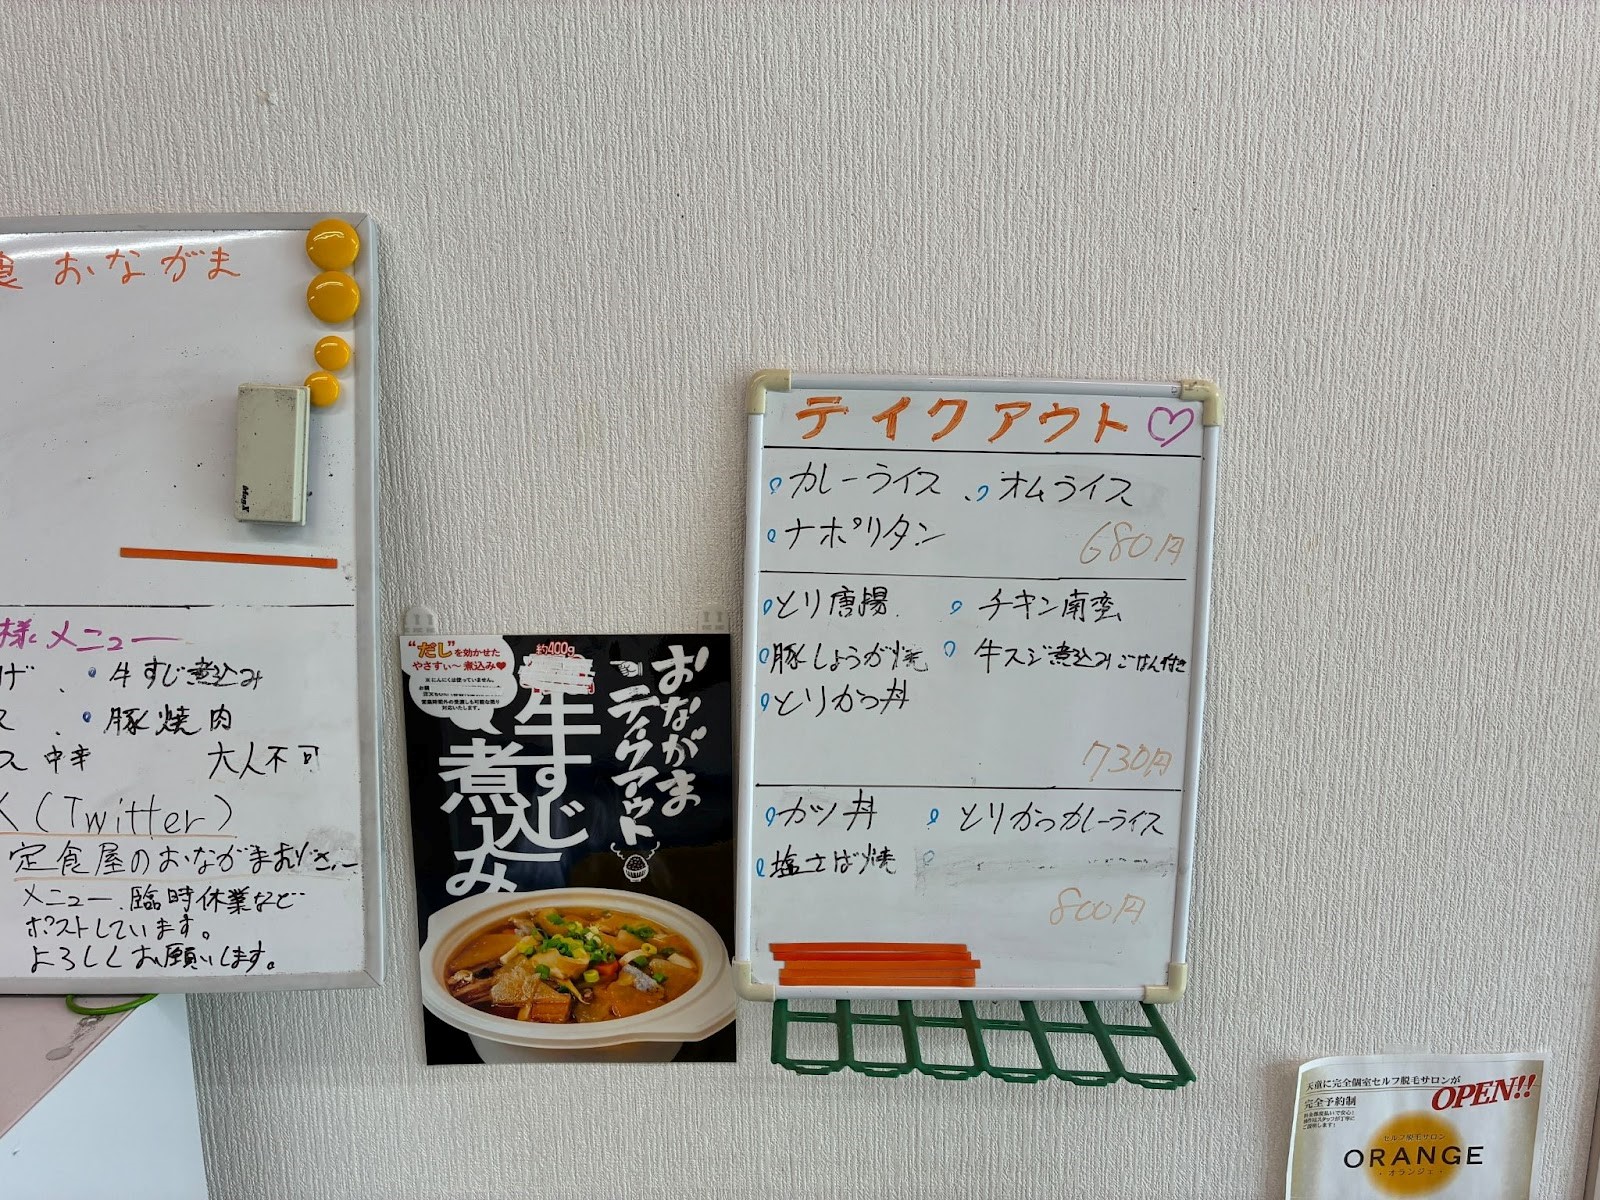 おながま
様メニュー
げ ・牛すじ煮込み
ス ・豚焼肉
ス 中辛 大人不可
(Twitter)
定食屋のおながま
メニュー、臨時休業など
ポストしています。
よろしくお願いします。
MagX
"だし"を効かせた
やさすぃ〜煮込み♥
※にんにくは使っていません。
営業時間外の受渡しも可能な限り
対応いたします。
おながま
テイクアウト
約400g
牛すじ
煮込み
テイクアウト♡
カレーライス オムライス
ナポリタン 680円
とり唐揚 チキン南蛮
豚しょうが焼 牛スジ煮込みごはん付き
とりかつ丼
730円
カツ丼 とりかつカレーライス
塩さば焼
800円
天童に完全個室セルフ脱毛サロンが
OPEN!!
完全予約制
セルフ脱毛サロン
ORANGE
・オランジェ・